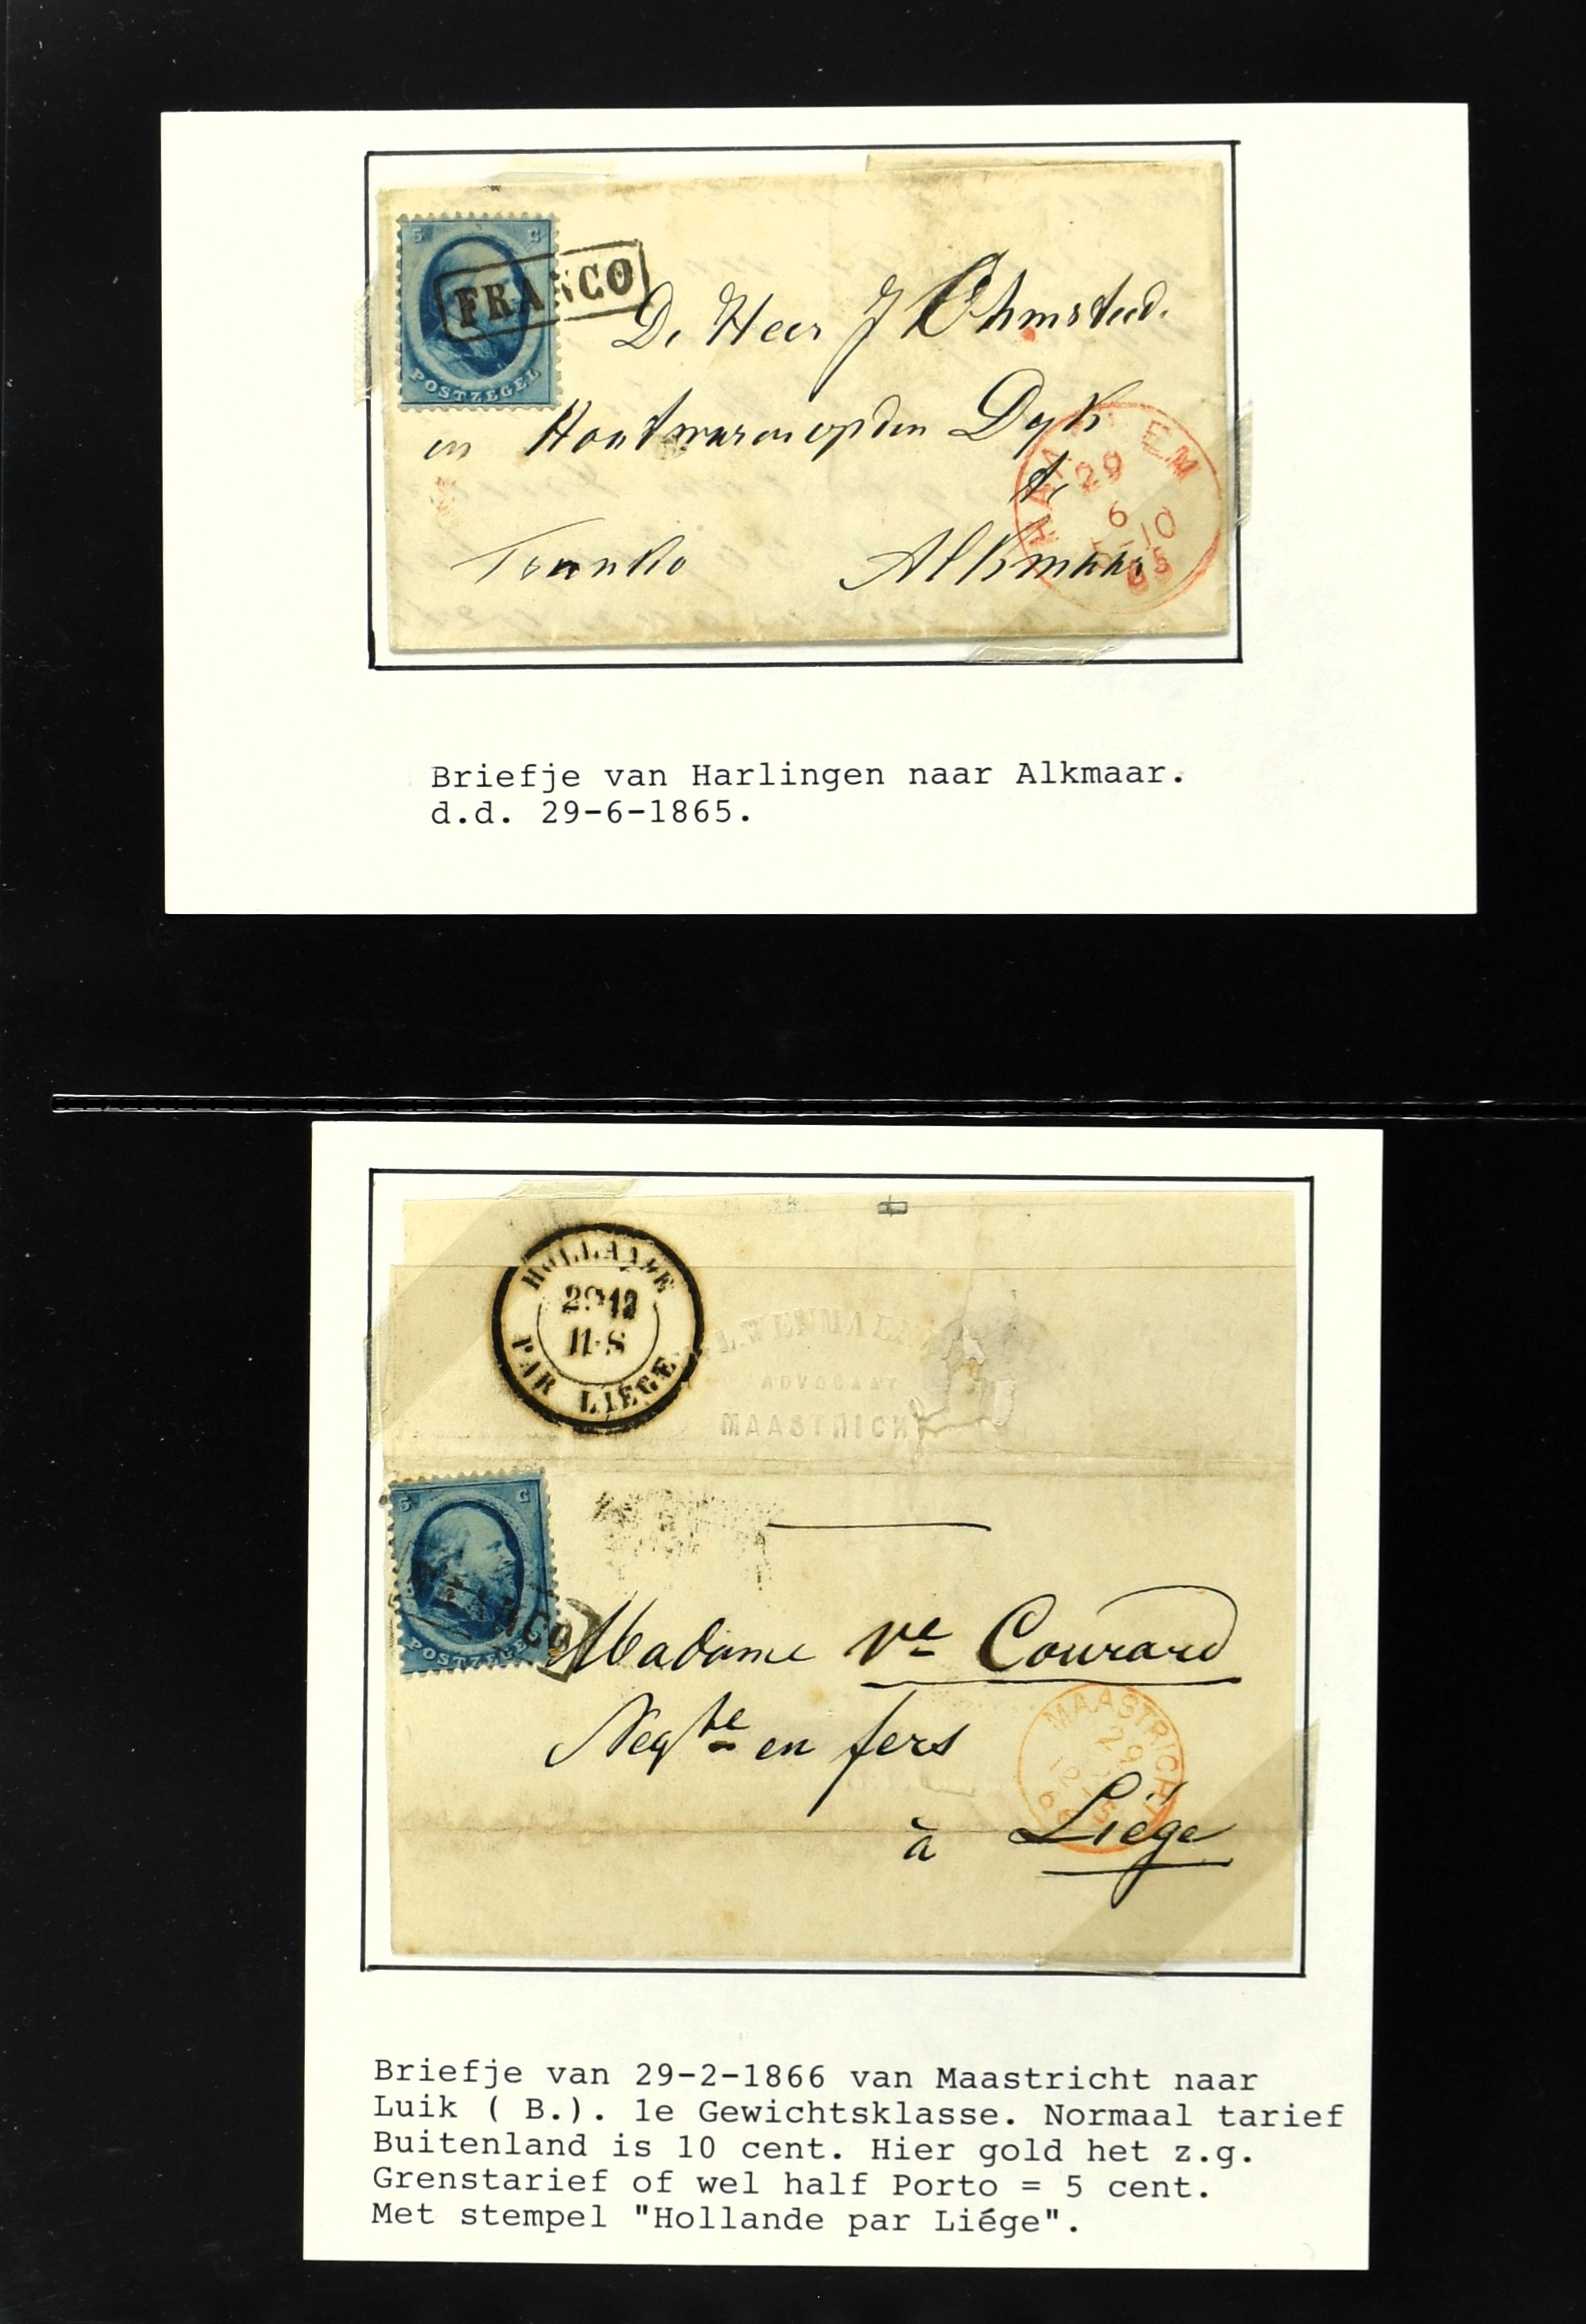 5 C
FRANCO
POSTZEGEL
De Heer J Ohmsteed.
en Houtwaren op den Dyk
te
Franko Alkmaar
HAA EM
29
6
10
65
Briefje van Harlingen naar Alkmaar.
d.d. 29-6-1865.
HOLLANDE
29 12
11-S
PAR LIÉGE
ADVOCAAT
MAASTRICHT
5 C
FRANCO
POSTZEGEL
Madame Ve Courard
Negte en fers
à Liége
MAASTRICHT
29
12
Briefje van 29-2-1866 van Maastricht naar
Luik ( B.). 1e Gewichtsklasse. Normaal tarief
Buitenland is 10 cent. Hier gold het z.g.
Grenstarief of wel half Porto = 5 cent.
Met stempel "Hollande par Liége".